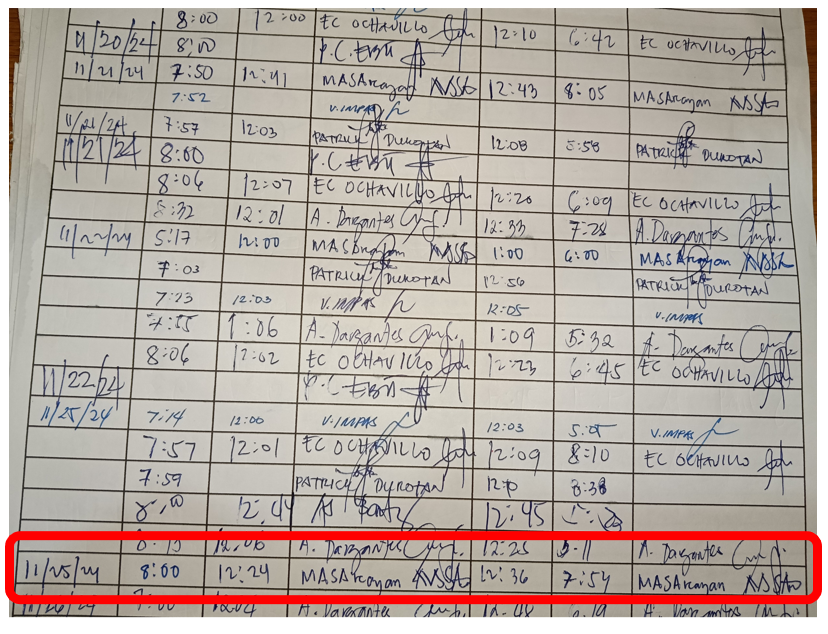 8:00 12:00 EC OCHAVILLO 12:10 6:42 EC OCHAVILLO
11/20/24 8:00 P.C. EBU
11/21/24 7:50 12:41 MASArcayan 12:43 8:05 MASArcayan
7:52 V.IMPAS
11/21/24 7:57 12:03 PATRICK DUROTAN 12:08 5:58 PATRICK DUROTAN
11/21/24 8:00 P.C. EBU
8:06 12:07 EC OCHAVILLO 12:20 6:09 EC OCHAVILLO
8:32 12:01 A. Dargantes 12:33 7:28 A. Dargantes
11/22/24 5:17 12:00 MASArcayan 1:00 6:00 MASArcayan
7:03 PATRICK DUROTAN 12:56 PATRICK DUROTAN
7:23 12:03 V.IMPAS 12:05 V.IMPAS
7:55 1:06 A. Dargantes 1:09 5:32 A. Dargantes
8:06 12:02 EC OCHAVILLO 12:23 6:45 EC OCHAVILLO
11/22/24 P.C. EBU
11/25/24 7:14 12:00 V.IMPAS 12:03 V.IMPAS
7:57 12:01 EC OCHAVILLO 12:09 8:10 EC OCHAVILLO
7:59 PATRICK DUROTAN 8:38
12:44 12:45
8:15 12:06 A. Dargantes 12:25 5:11 A. Dargantes
11/25/24 8:00 12:24 MASArcayan 12:36 7:54 MASArcayan
11/26/24 7:00 12:04 A. Dargantes 12:48 6:19 A. Dargantes